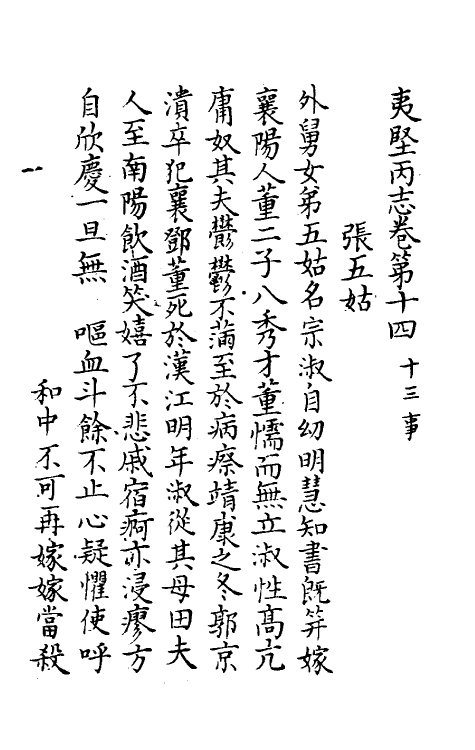 夷堅丙志卷第十四 十三事
張五姑
外舅女弟五姑名宗淑自幼明慧知書既笄嫁
襄陽人董二子八秀才董懦而無立淑性高亢
庸奴其夫鬱鬱不滿至於病瘵靖康之冬郭京
潰卒犯襄鄧董死於漢江明年淑從其母田夫
人至南陽飲酒笑嬉了不悲戚宿痾亦浸瘳方
自欣慶一旦無 嘔血斗餘不止心疑懼使呼
和中不可再嫁嫁當殺